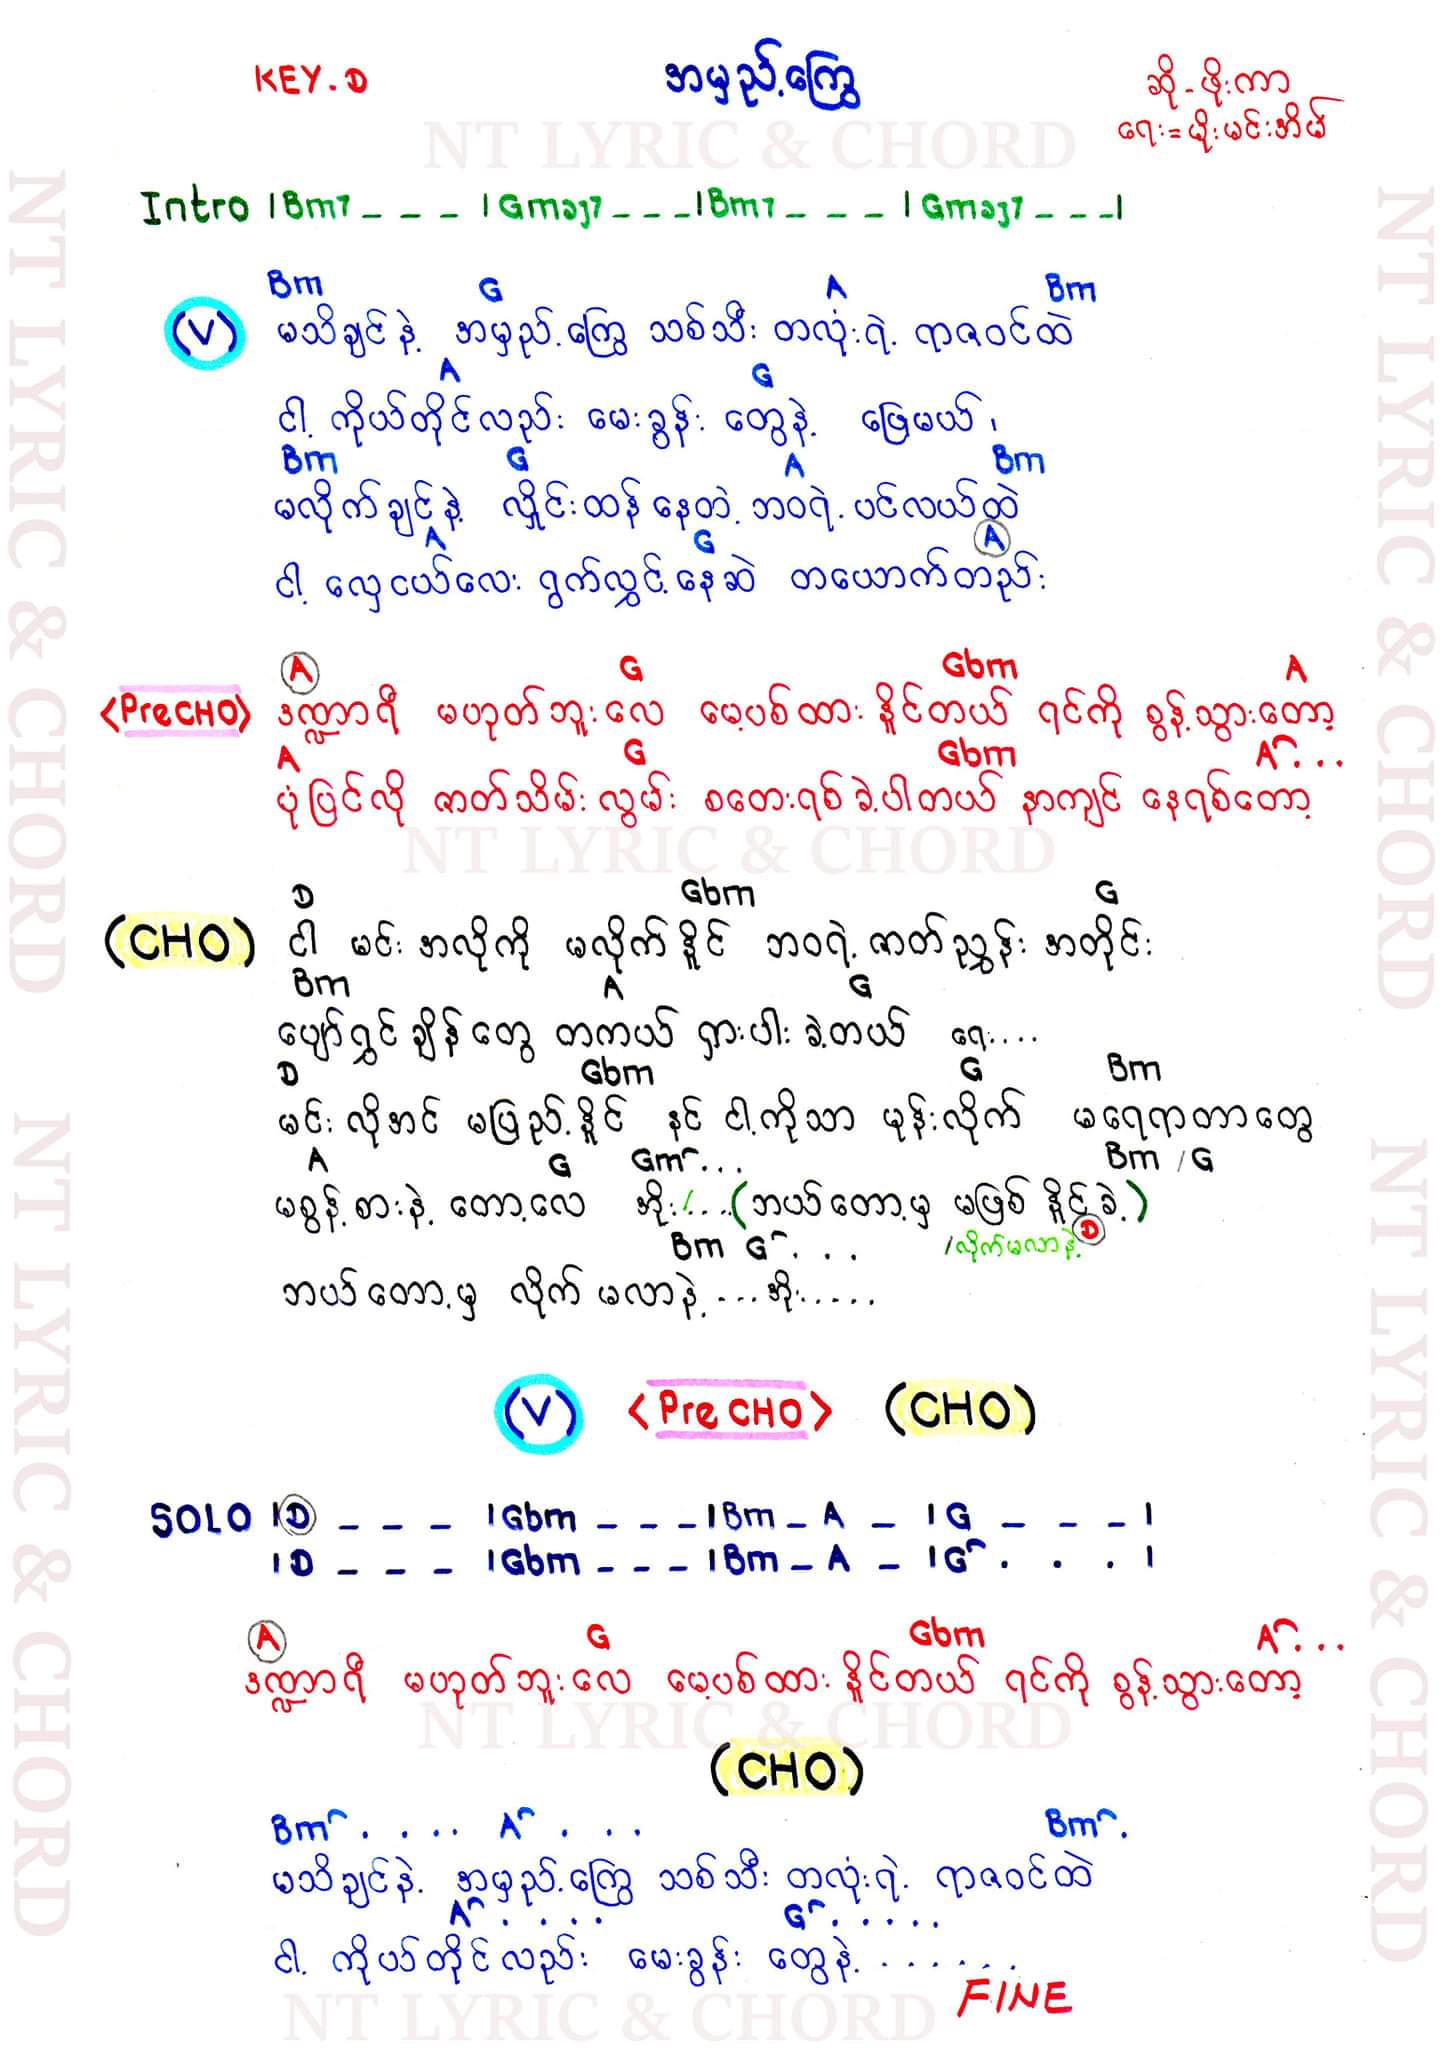 KEY.D
အမှည့်ကြွေ
ဆို - ဖိုးကာ
ရေး = မိုးမင်းအိမ်
NT LYRIC & CHORD
Intro |Bm7 _ _ _ |Gmaj7 _ _ _|Bm7 _ _ _ |Gmaj7 _ _ _|
Bm G A Bm
(V) မသိချင်နဲ့ အမှည့်ကြွေ သစ်သီး တလုံးရဲ့ ရာဇဝင်ထဲ
A G
ငါ့ ကိုယ်တိုင်လည်း မေးခွန်း တွေနဲ့ ဖြေမယ်၊
Bm G A Bm
မလိုက်ချင်နဲ့ လှိုင်းထန်နေတဲ့ ဘဝရဲ့ ပင်လယ်ထဲ
A G A
ငါ့ လှေငယ်လေး ရွက်လွှင့်နေဆဲ တယောက်တည်း
A G Gbm A
<PreCHO> ဒဏ္ဍာရီ မဟုတ်ဘူးလေ မေ့ပစ်ထား နိူင်တယ် ရင်ကို စွန့်သွားတော့
A G Gbm A...
ပုံပြင်လို ဇာတ်သိမ်းလွမ်း စတေးရစ်ခဲ့ပါတယ် နာကျင် နေရစ်တော့
NT LYRIC & CHORD
D Gbm G
(CHO) ငါ မင်း အလိုကို မလိုက်နိူင် ဘဝရဲ့ ဇာတ်ညွှန်း အတိုင်း
Bm A G
ပျော်ရွှင်ချိန်တွေ တကယ် ရှားပါးခဲ့တယ် ရေး....
D Gbm G Bm
မင်းလိုအင် မပြည့်နိူင် နင် ငါ့ကိုသာ မုန်းလိုက် မရေရာတာတွေ
A G Gm... Bm / G
မစွန့်စားနဲ့ တော့လေ အိုး/....(ဘယ်တော့မှ မဖြစ်နိူင်ခဲ့)
Bm G... /လိုက်မလာနဲ့ D
ဘယ်တော့မှ လိုက်မလာနဲ့....အိုး.....
(V) <PreCHO> (CHO)
SOLO |D _ _ _ |Gbm _ _ _|Bm _ A _ |G _ _ _|
|D _ _ _ |Gbm _ _ _|Bm _ A _ |G . . .|
A G Gbm A...
ဒဏ္ဍာရီ မဟုတ်ဘူးလေ မေ့ပစ်ထား နိူင်တယ် ရင်ကို စွန့်သွားတော့
NT LYRIC & CHORD
(CHO)
Bm.... A... Bm.
မသိချင်နဲ့ အမှည့်ကြွေ သစ်သီး တလုံးရဲ့ ရာဇဝင်ထဲ
A.... G.....
ငါ့ ကိုယ်တိုင်လည်း မေးခွန်း တွေနဲ့.......
FINE
NT LYRIC & CHORD
NT LYRIC & CHORD
NT LYRIC & CHORD
NT LYRIC & CHORD
NT LYRIC & CHORD